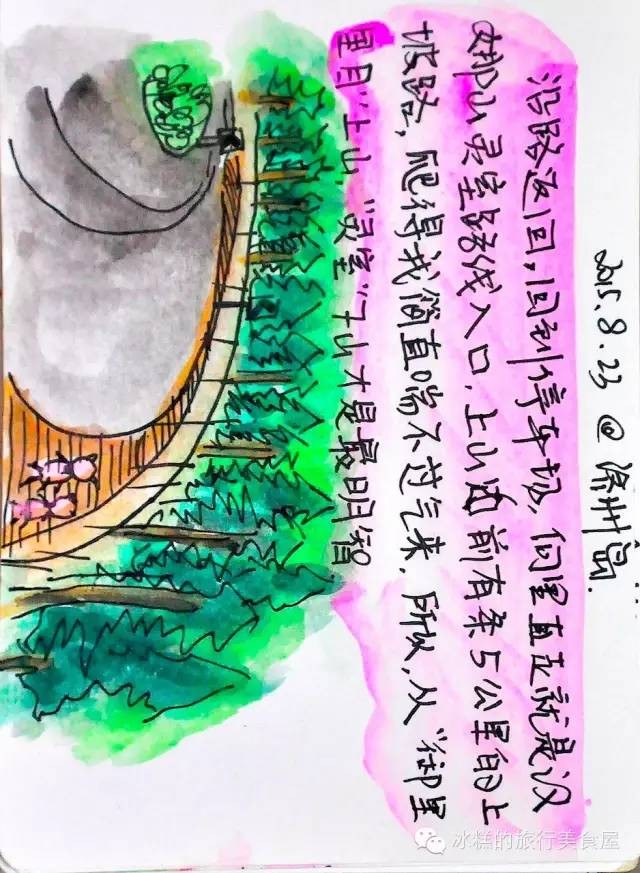 2015.8.23 @ 济州岛.
沿路返回,回到停车场,向里直走就是汉
娜山灵室路线入口,上山前有条5公里的上
坡路,爬得我简直喘不过气来,所以,从"御里
里目"上山"灵室"下山才是最明智
冰糕的旅行美食屋